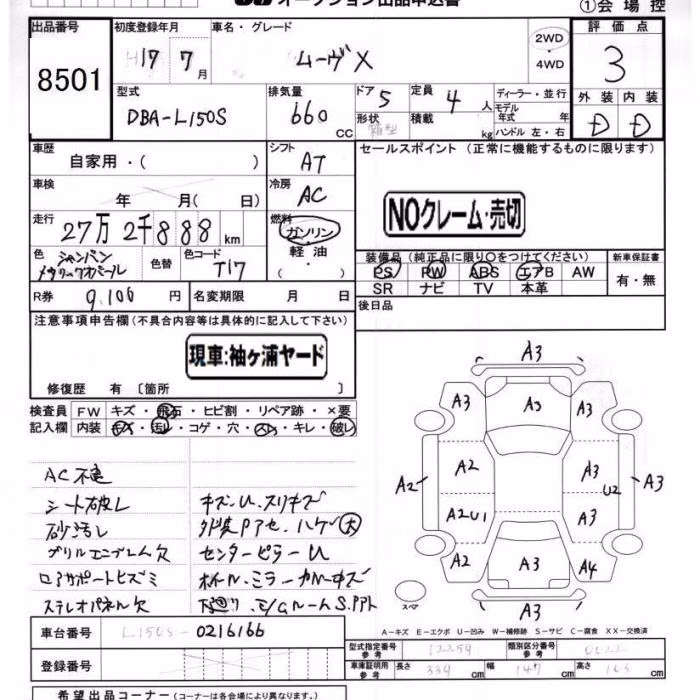 オークション出品申込書
①会場控
出品番号 初度登録年月 車名・グレード 評価点
8501 H17 7月 ムーヴX 2WD ・ 4WD 3
型式 排気量 ドア 定員 ディーラー・並行
DBA-L150S 660 CC 5 4人 モデル年式 年
形状 箱型 積載 kg ハンドル 左・右
外装 内装
D D
車歴 自家用・( ) シフト AT
セールスポイント (正常に機能するものに限ります)
車検 年 月( 日) 冷房 AC
NOクレーム・売切
走行 27万2千888km 燃料 ガソリン・軽油
色 シャンパンメタリックオパール 色替 色コード T17
装備品 (純正品に限り○をつけてください) 新車保証書
PS PW ABS エアB AW 有・無
SR ナビ TV 本革
R券 9,100円 名変期限 月 日
後日品
注意事項申告欄(不具合内容等は具体的に記入して下さい)
現車:袖ヶ浦ヤード
修復歴 有〔箇所 〕
検査員 FW キズ・飛石・ヒビ割・リペア跡・×要
記入欄 内装 キズ・汚レ・コゲ・穴・スレ・キレ・破レ
AC不良
シート破レ キズ・U.スリキズ
砂汚レ 外装Pアセ.ハゲ(大)
グリルエンブレム欠 センターピラーU
ロアサポートヒズミ ホイール.ミラーカバーキズ
ステレオパネル欠 下廻り.E/GルームS.Pアト
A3
A3 A3 A3
A2 A2 A3 U2 A3
A2U1 A3
A2 A3 A4
スペア
A3
A-キズ E-エクボ U-凹み W-補修跡 S-サビ C-腐食 XX-交換済
車台番号 L150S-0216166
型式指定番号 参考 類別区分番号 参考
登録番号
車庫証明用 参考 長さ 339cm 幅 147cm 高さ cm
希望出品コーナー (コーナーは各会場により異なります。)